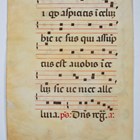 i qd aspicitis i celum
hic iesus qui assup
tus est a uobis i ce
lum sic ueniet alle
luia. ps. Dns reg